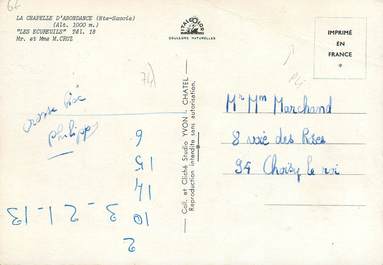 LA CHAPELLE D'ABONDANCE (Hte-Savoie)
(Alt. 1000 m.)
"LES ECUREUILS" Tél. 18
Mr. et Mme W. CRUZ
74
grosse bise
philippe
6
15
14
10 3-21-13
2
COULEURS NATURELLES
Coll. et Cliché Studio YVON L. CHATEL
Reproduction interdite sans autorisation.
IMPRIMÉ
EN
FRANCE
Mr Mm Marchand
8 voie des Rices
94 Choisy le roi